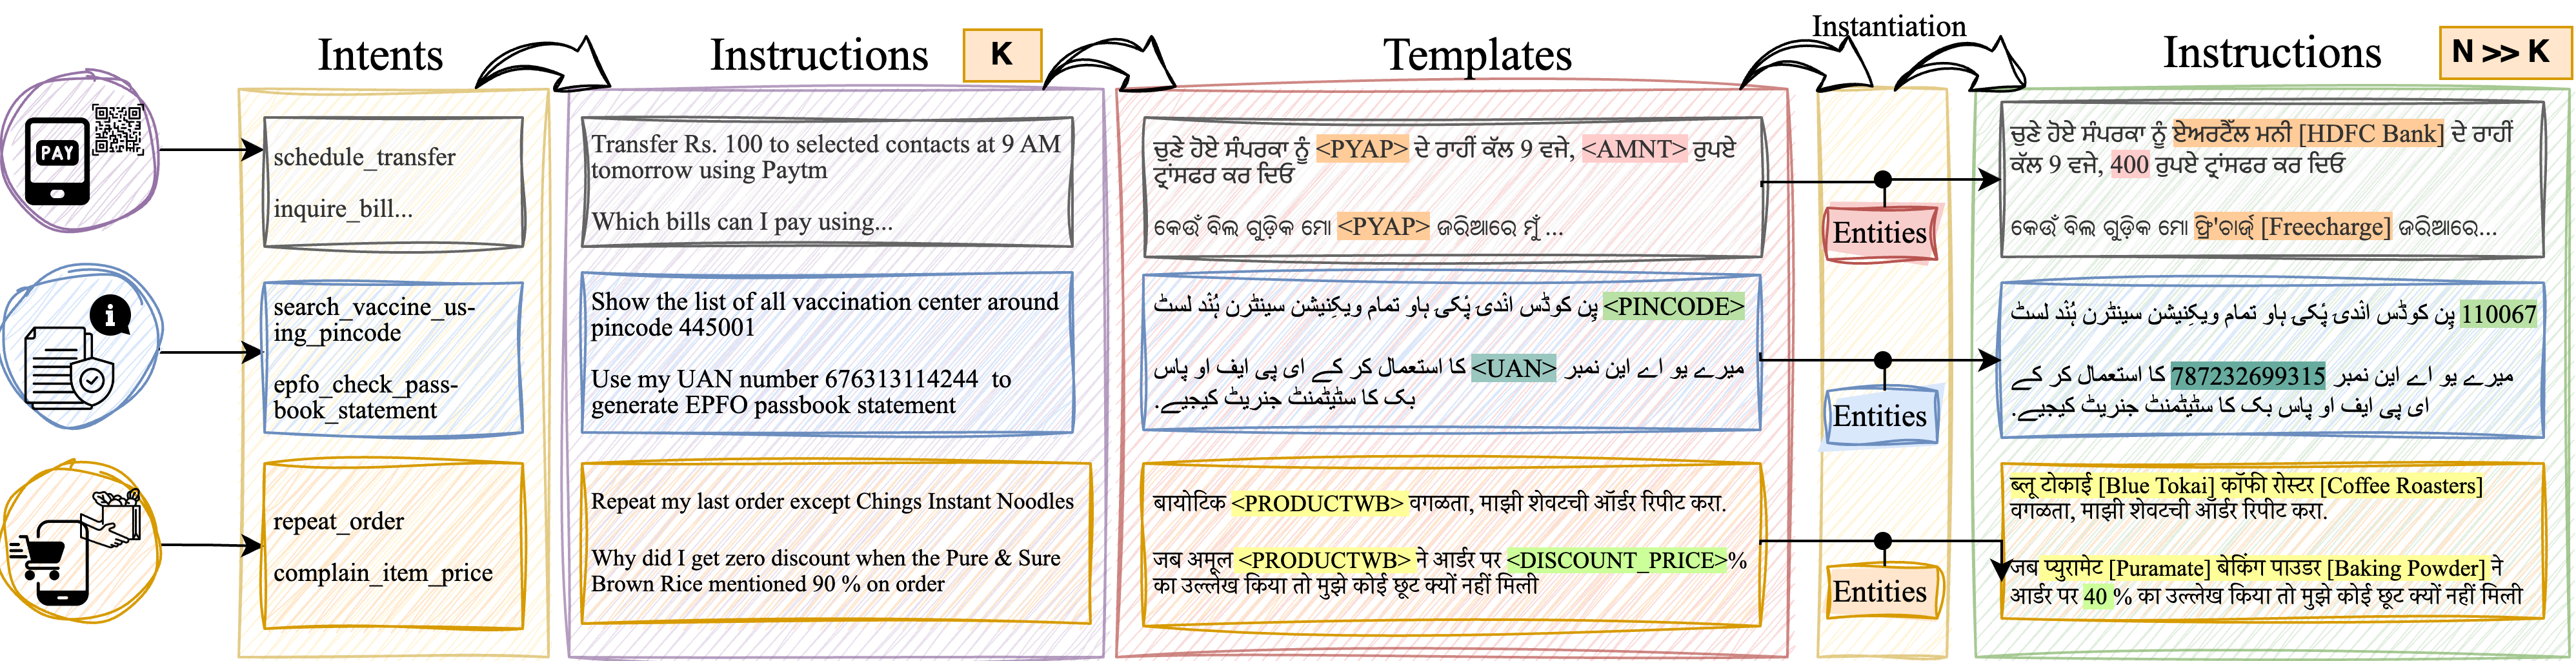 Intents
Instructions
K
Templates
Instantiation
Instructions
N >> K
PAY
schedule_transfer
inquire_bill...
Transfer Rs. 100 to selected contacts at 9 AM
tomorrow using Paytm
Which bills can I pay using...
ਚੁਣੇ ਹੋਏ ਸੰਪਰਕਾ ਨੂੰ <PYAP> ਦੇ ਰਾਹੀਂ ਕੱਲ 9 ਵਜੇ, <AMNT> ਰੁਪਏ
ਟ੍ਰਾਂਸਫਰ ਕਰ ਦਿਓ
କେଉଁ ବିଲ ଗୁଡ଼ିକ ମୋ <PYAP> ଜରିଆରେ ମୁଁ ...
Entities
ਚੁਣੇ ਹੋਏ ਸੰਪਰਕਾ ਨੂੰ ਏਅਰਟੈੱਲ ਮਨੀ [HDFC Bank] ਦੇ ਰਾਹੀਂ
ਕੱਲ 9 ਵਜੇ, 400 ਰੁਪਏ ਟ੍ਰਾਂਸਫਰ ਕਰ ਦਿਓ
କେଉଁ ବିଲ ଗୁଡ଼ିକ ମୋ ଫ୍ରି'ଚାର୍ଜ୍ [Freecharge] ଜରିଆରେ...
search_vaccine_us-
ing_pincode
epfo_check_pass-
book_statement
Show the list of all vaccination center around
pincode 445001
Use my UAN number 676313114244 to
generate EPFO passbook statement
<PINCODE> پِن کوڈس اندٕی پٔکی ہاو تمام ویکنیشن سینٹرن ہُنٛد لسٹ
میرے یو اے این نمبر <UAN> کا استعمال کر کے ای پی ایف او پاس
بک کا سٹیٹمنٹ جنریٹ کیجیے.
Entities
110067 پِن کوڈس اندٕی پٔکی ہاو تمام ویکنیشن سینٹرن ہُنٛد لسٹ
میرے یو اے این نمبر 787232699315 کا استعمال کر کے
ای پی ایف او پاس بک کا سٹیٹمنٹ جنریٹ کیجیے.
repeat_order
complain_item_price
Repeat my last order except Chings Instant Noodles
Why did I get zero discount when the Pure & Sure
Brown Rice mentioned 90 % on order
बायोटिक <PRODUCTWB> वगळता, माझी शेवटची ऑर्डर रिपीट करा.
जब अमूल <PRODUCTWB> ने आर्डर पर <DISCOUNT_PRICE>%
का उल्लेख किया तो मुझे कोई छूट क्यों नहीं मिली
Entities
ब्लू टोकाई [Blue Tokai] कॉफी रोस्टर [Coffee Roasters]
वगळता, माझी शेवटची ऑर्डर रिपीट करा.
जब प्युरामेट [Puramate] बेकिंग पाउडर [Baking Powder] ने
आर्डर पर 40 % का उल्लेख किया तो मुझे कोई छूट क्यों नहीं मिली